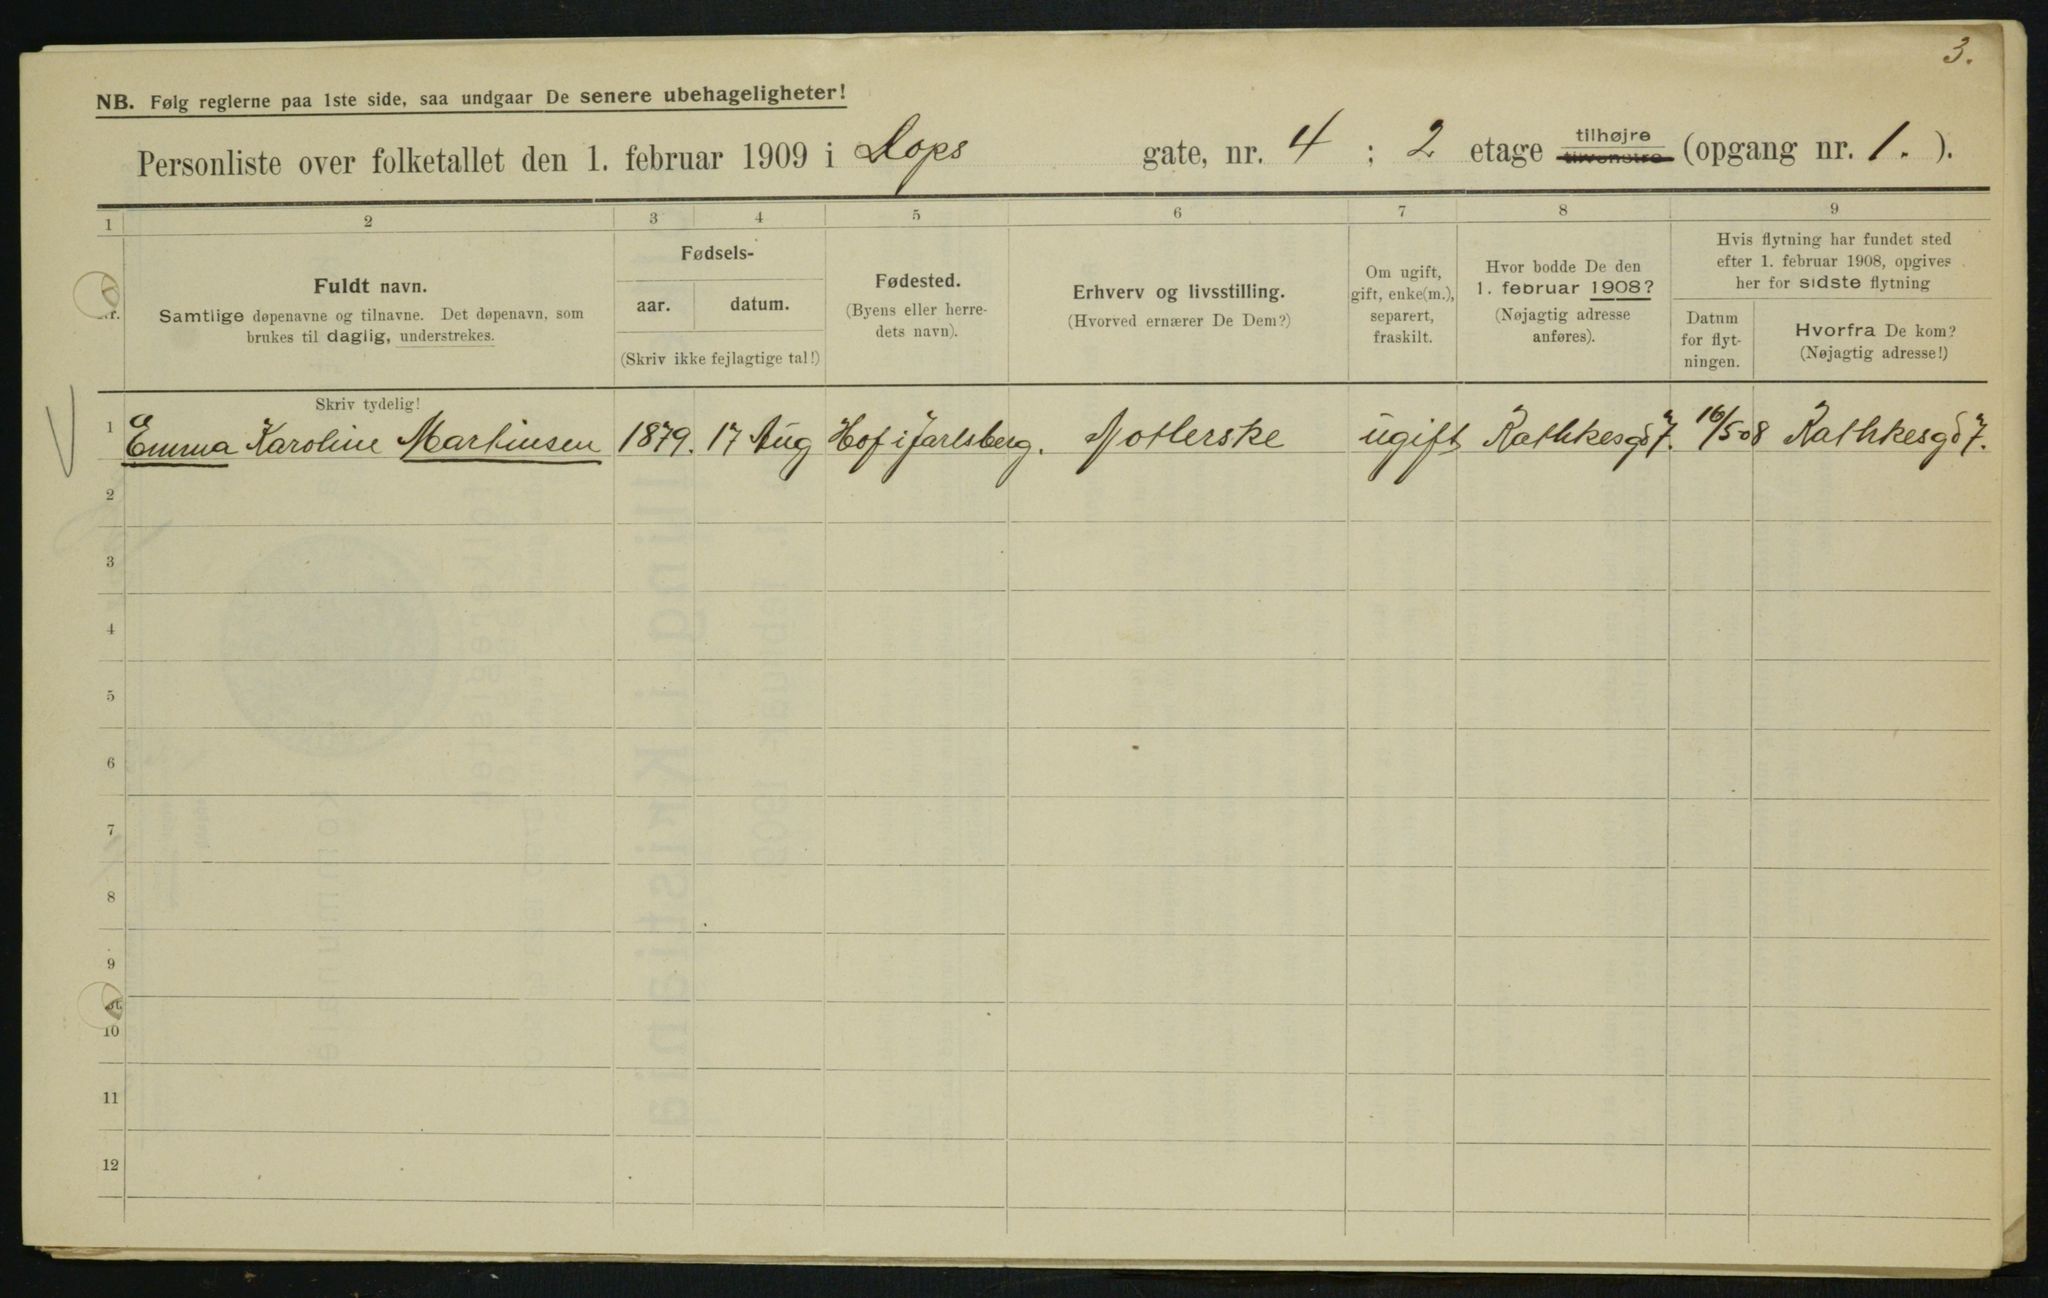 3.
NB. Følg reglerne paa 1ste side, saa undgaar De senere ubehageligheter!
Personliste over folketallet den 1. februar 1909 i Dops gate, nr. 4 ; 2 etage tilhøjre tilvenstre (opgang nr. 1. ).
1 2 3 4 5 6 7 8 9
Nr.
Fuldt navn.
Samtlige døpenavne og tilnavne. Det døpenavn, som
brukes til daglig, understrekes.
Fødsels-
aar. datum.
(Skriv ikke fejlagtige tal!)
Fødested.
(Byens eller herre-
dets navn).
Erhverv og livsstilling.
(Hvorved ernærer De Dem?)
Om ugift,
gift, enke(m.),
separert,
fraskilt.
Hvor bodde De den
1. februar 1908?
(Nøjagtig adresse
anføres).
Hvis flytning har fundet sted
efter 1. februar 1908, opgives
her for sidste flytning
Datum
for flyt-
ningen.
Hvorfra De kom?
(Nøjagtig adresse!)
Skriv tydelig!
1 Emma Karoline Martinsen 1879. 17 Aug Hof i Jarlsberg. ugift Rathkesg 7. 16/5 08 Rathkesg 7.
2
3
4
5
6
7
8
9
10
11
12